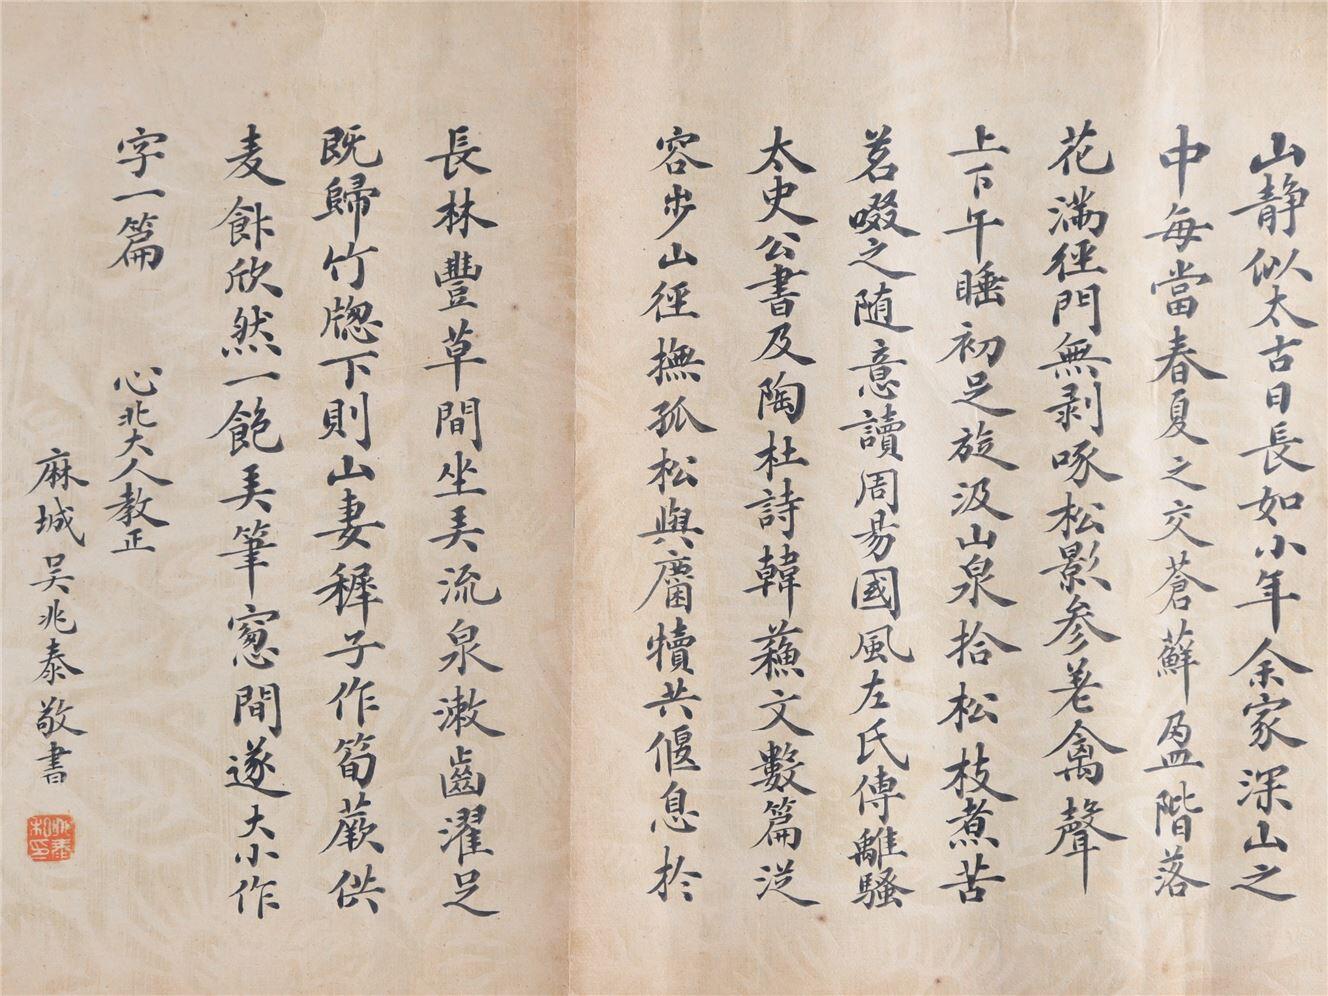 山靜似太古日長如小年余家深山之
中每當春夏之交蒼蘚盈階落
花滿徑門無剥啄松影參差禽聲
上下午睡初足旋汲山泉拾松枝煮苦
茗啜之随意讀周易國風左氏傳離騷
太史公書及陶杜詩韓蘓文數篇従
容步山徑撫孤松與麕犢共偃息於
長林豐草間坐弄流泉漱齒濯足
既歸竹牎下則山妻稺子作筍蕨供
麦飰欣然一飽弄筆窻間遂大小作
字一篇
心北大人教正
麻城吴兆泰敬書
兆泰私印